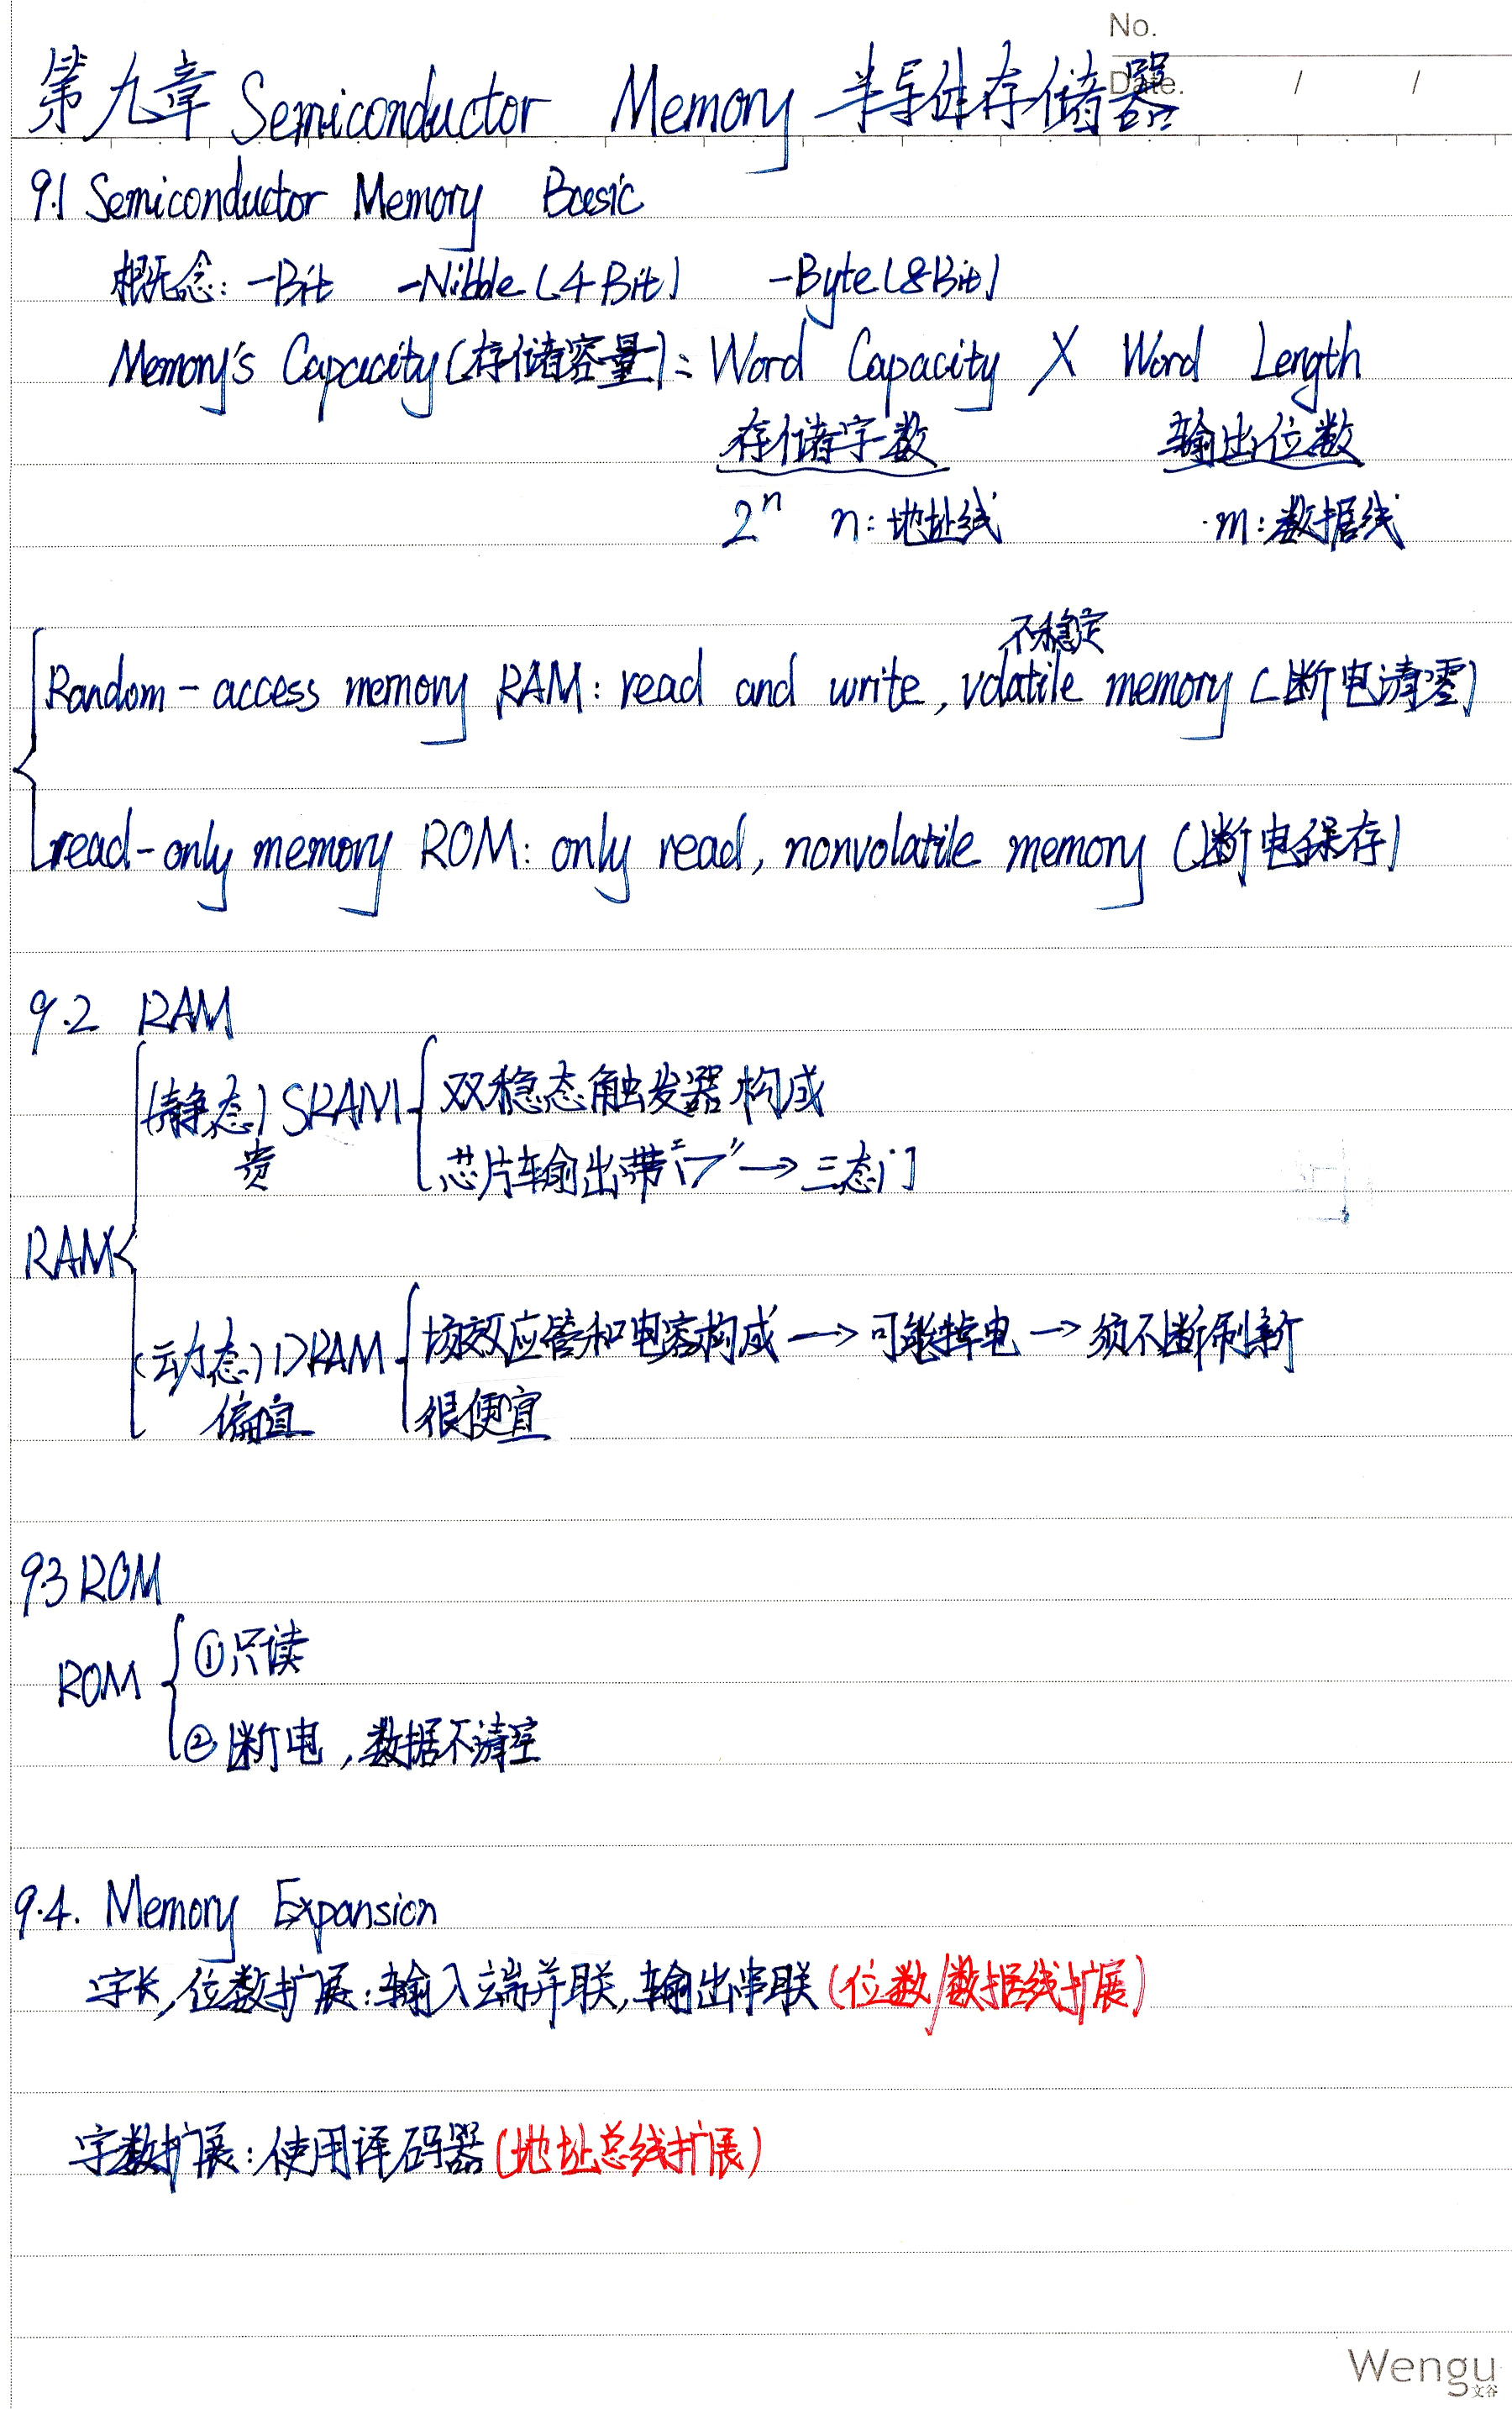 No.
Date. / /
第九章 Semiconductor Memory 半导体存储器
9.1 Semiconductor Memory Basic
概念: -Bit -Nibble(4 Bit) -Byte(8 Bit)
Memory's Capacity(存储容量)= Word Capacity X Word Length
存储字数 输出位数
2ⁿ n: 地址线 m: 数据线
不稳定
Random-access memory RAM: read and write, volatile memory (断电清零)
read-only memory ROM: only read, nonvolatile memory (断电保存)
9.2 RAM
(静态) SRAM 双稳态触发器构成
贵 芯片输出带"▽"→三态门
RAM
(动态) DRAM 场效应管和电容构成→可能掉电→须不断刷新
便宜 很便宜
9.3 ROM
ROM ①只读
②断电,数据不清空
9.4. Memory Expansion
字长,位数扩展: 输入端并联,输出串联(位数/数据线扩展)
字数扩展: 使用译码器(地址总线扩展)
Wengu
文谷